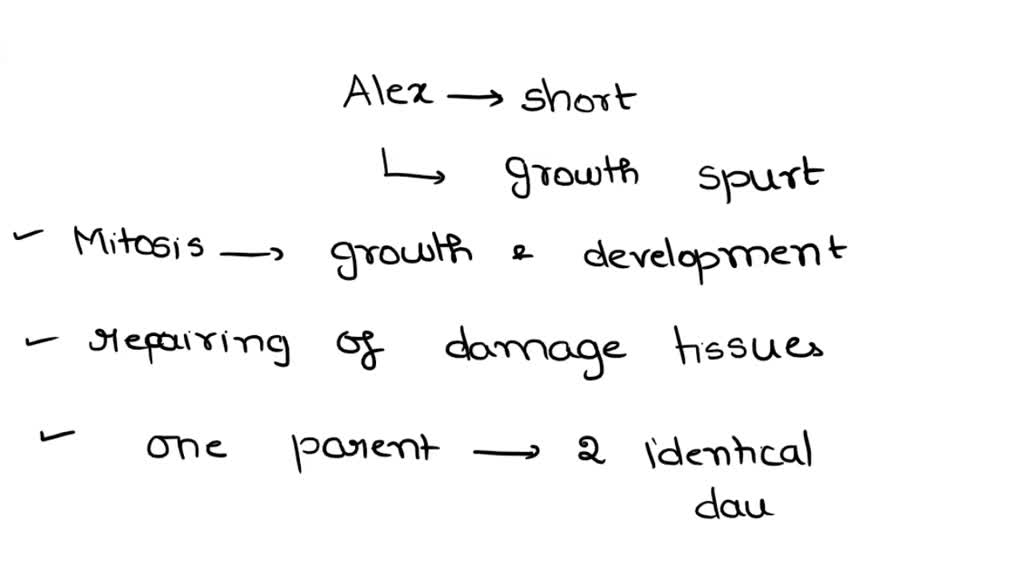 Alex → short
↳ growth spurt
✓ Mitosis → growth & development
✓ repairing of damage tissues
✓ one parent → 2 identical
dau